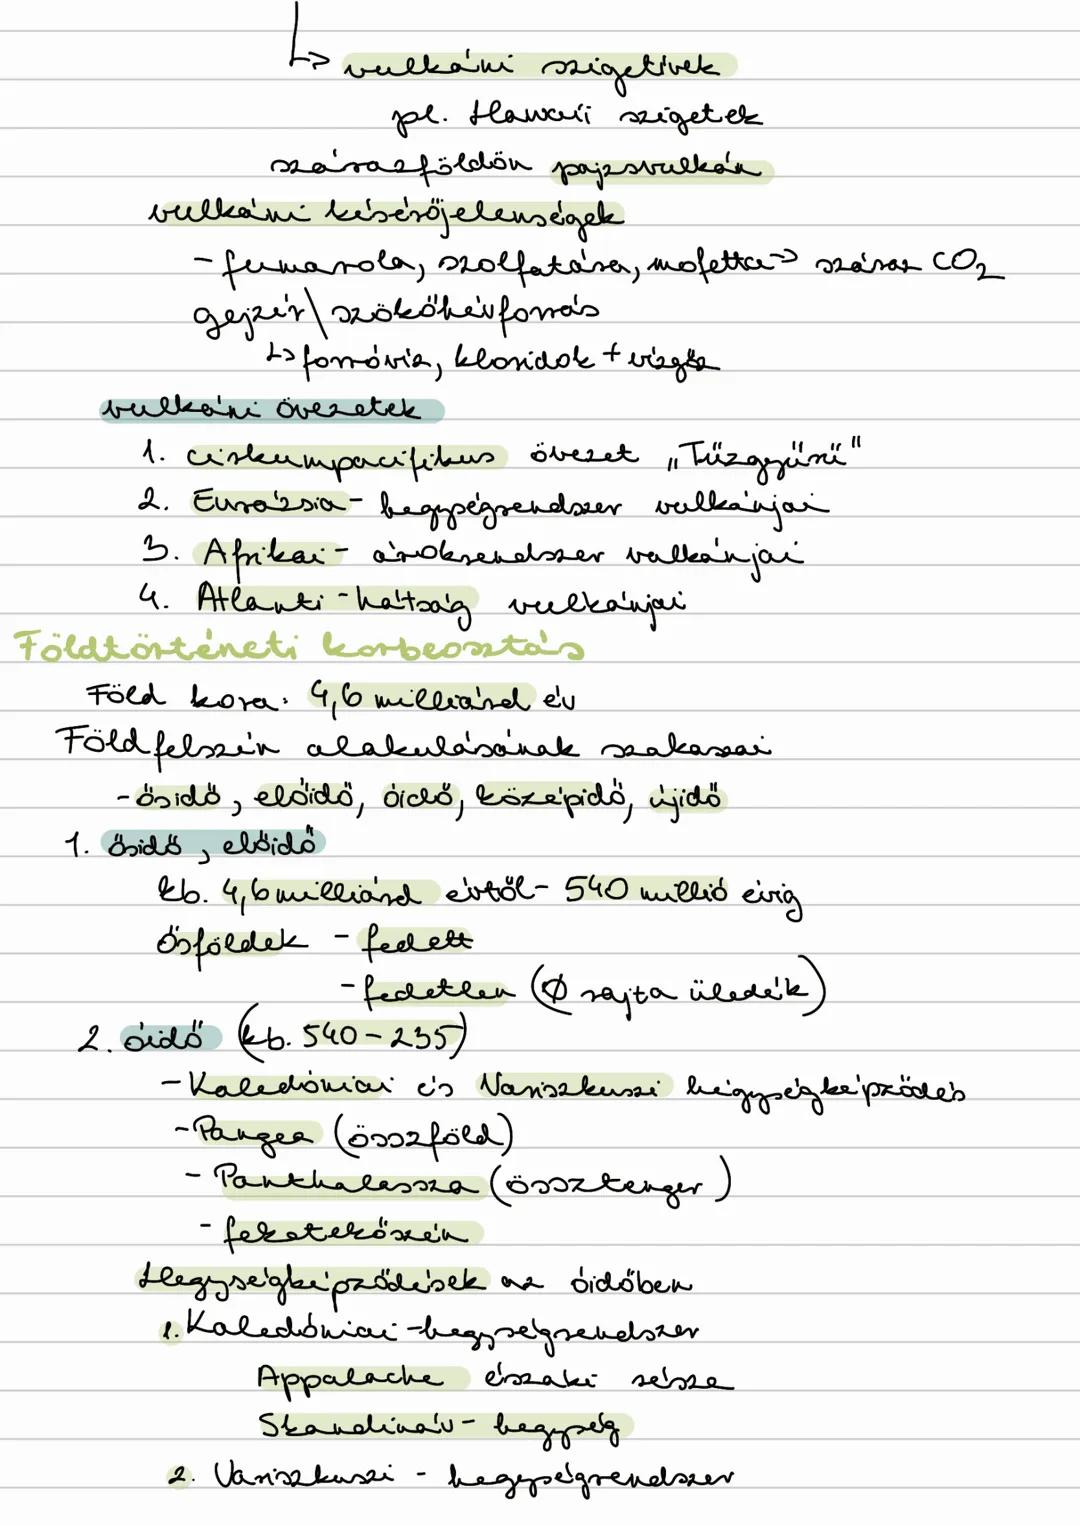 ↳ vulkáni szigetívek
pl. Hawaii szigetek
szárazföldön pajzsvulkán
vulkáni kísérőjelenségek
- fumarola, szolfatára, mofetta → száraz CO₂
gejzír \ szökőhévforrás
↳ forróvíz, kloridok + vízgőz
vulkáni övezetek
1. cirkumpacifikus övezet „Tűzgyűrű"
2. Eurázsia - hegységrendszer vulkánjai
3. Afrikai - árokrendszer vulkánjai
4. Atlanti - hátság vulkánjai
Földtörténeti korbeosztás
Föld kora: 4,6 milliárd év
Földfelszín alakulásának szakaszai
- ősidő, előidő, óidő, középidő, újidő
1. ősidő, előidő
kb. 4,6 milliárd évtől - 540 millió évig
ősföldek - fedett
- fedetlen (Ø rajta üledék)
2. óidő (kb. 540 - 235)
- Kaledóniai és Variszkuszi hegységképződés
- Pangea (összföld)
- Panthalassza (össztenger)
- feketekőszén
Hegységképződések az óidőben
1. Kaledóniai - hegységrendszer
Appalache északi része
Skandináv - hegység
2. Variszkuszi - hegységrendszer